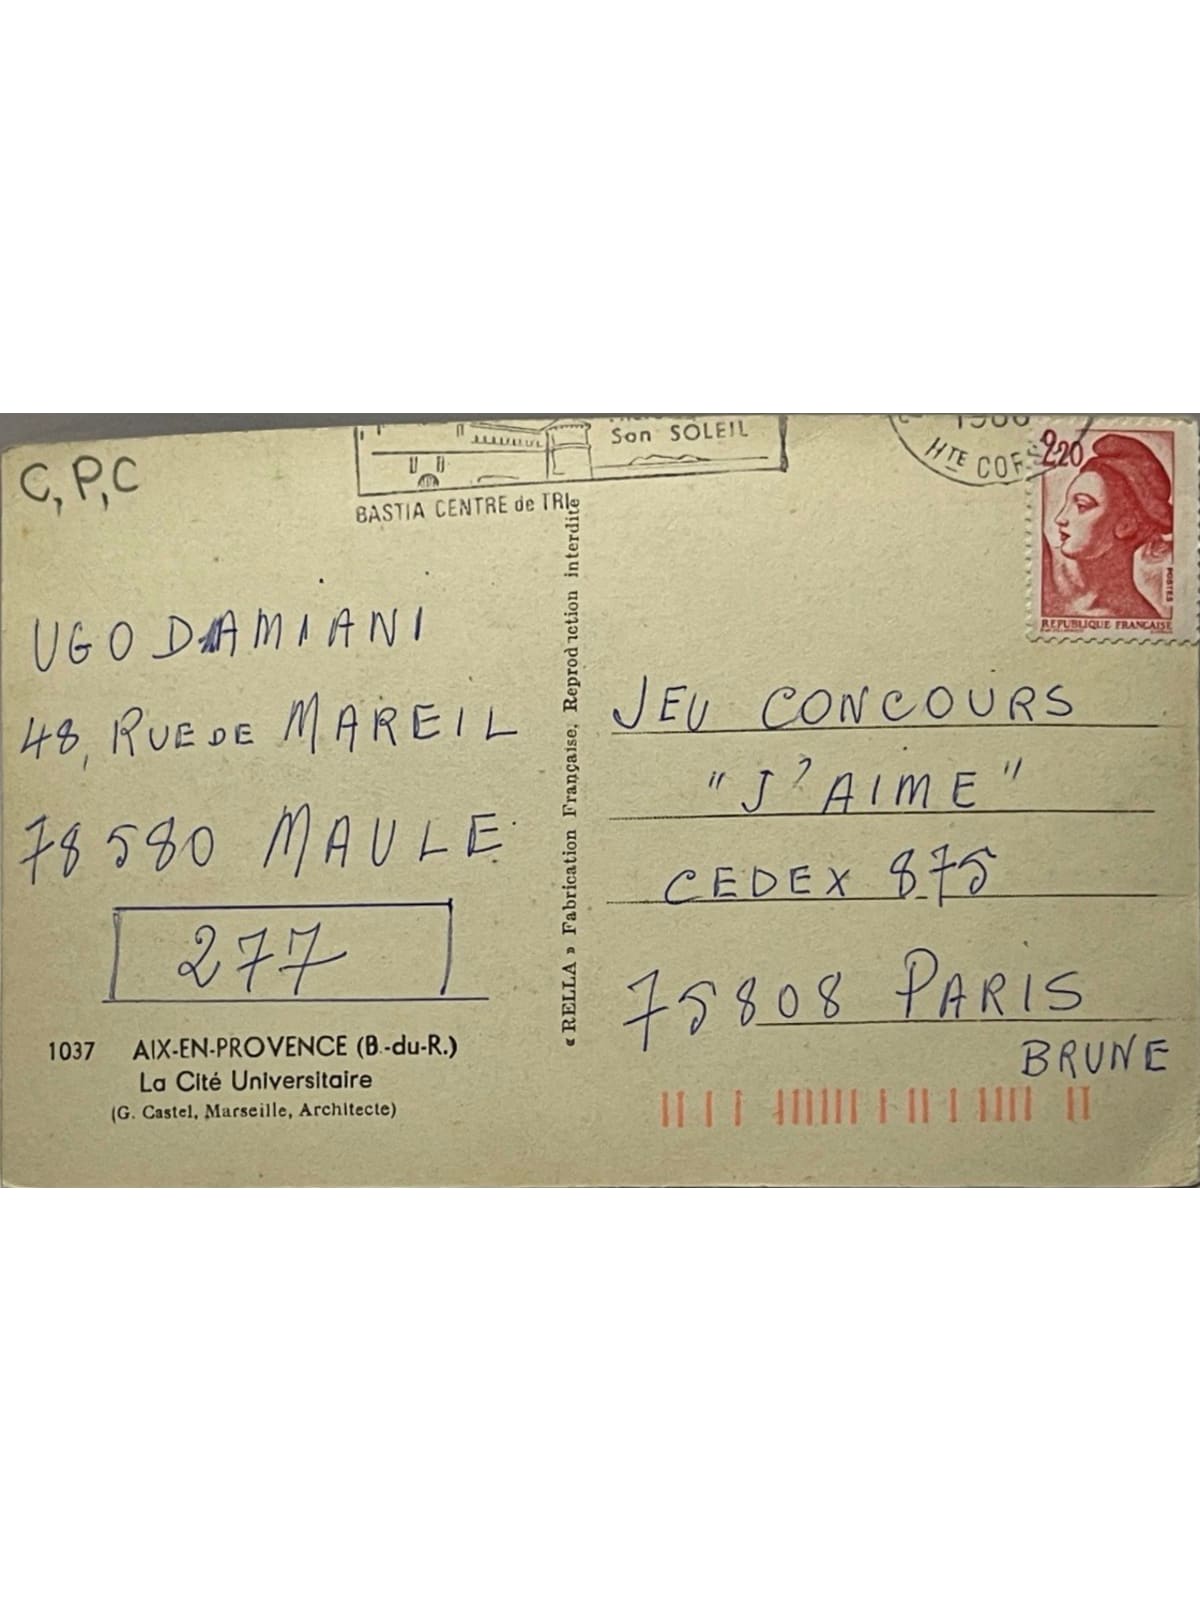 C,P,C
Son SOLEIL
BASTIA CENTRE de TRI
HTE CORSE
2,20
POSTES
REPUBLIQUE FRANÇAISE
UGO DAMIANI
48, RUE DE MAREIL
78580 MAULE
277
1037 AIX-EN-PROVENCE (B.-du-R.)
La Cité Universitaire
(G. Castel, Marseille, Architecte)
« RELLA » Fabrication Française, Reproduction interdite
JEU CONCOURS
"J'AIME"
CEDEX 875
75808 PARIS
BRUNE